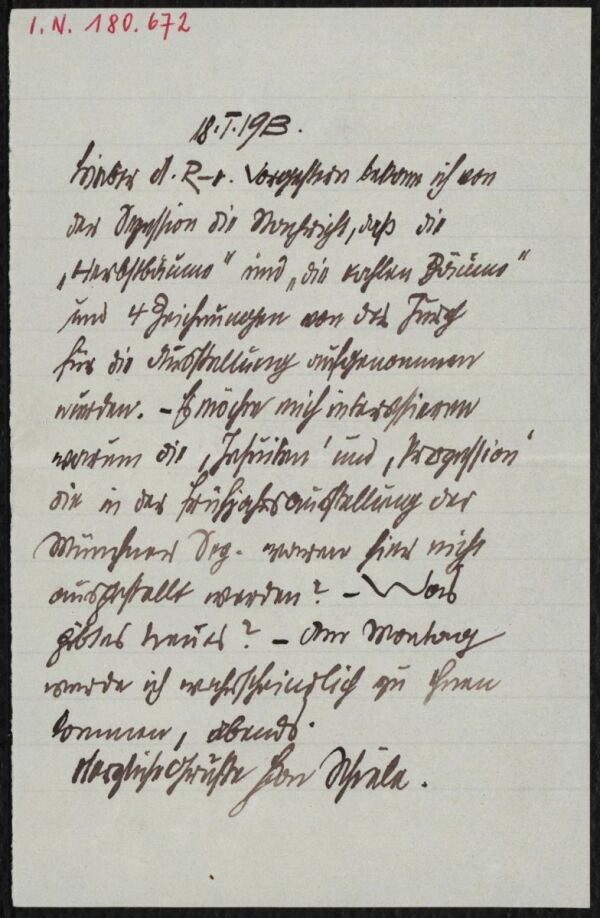 I. N. 180.672
18.I.1913.
Lieber A. R-r. Vorgestern bekam ich von
der Sezession die Nachricht, daß die
„Herbstbäume“ und „die kahlen Bäume“
und 4 Zeichnungen von der Jury
für die Ausstellung aufgenommen
wurden. – Es möchte mich interessieren
warum die ‚Jesuiten‘ und ‚Progression‘
die in der Frühjahrsausstellung der
Münchner Sez. waren hier nicht
ausgestellt werden? – Was
gibt es neues? – Am Montag
werde ich wahrscheinglich zu Ihnen
kommen, abends.
Herzliche Grüße Egon Schiele.